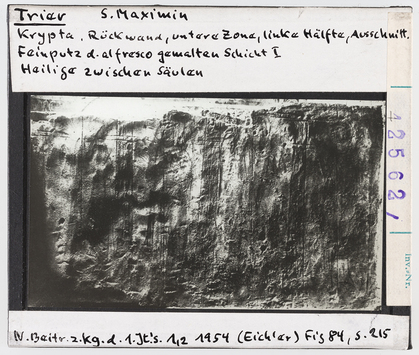 Trier S. Maximin
Krypta, Rückwand, untere Zone, linke Hälfte, Ausschnitt.
Feinputz d. alfresco gemalten Schicht I
Heilige zwischen Säulen
42562,
Inv.Nr.
N. Beitr. z. Kg. d. 1. Jt's. 1,2 1954 (Eichler) Fig 84, S. 215